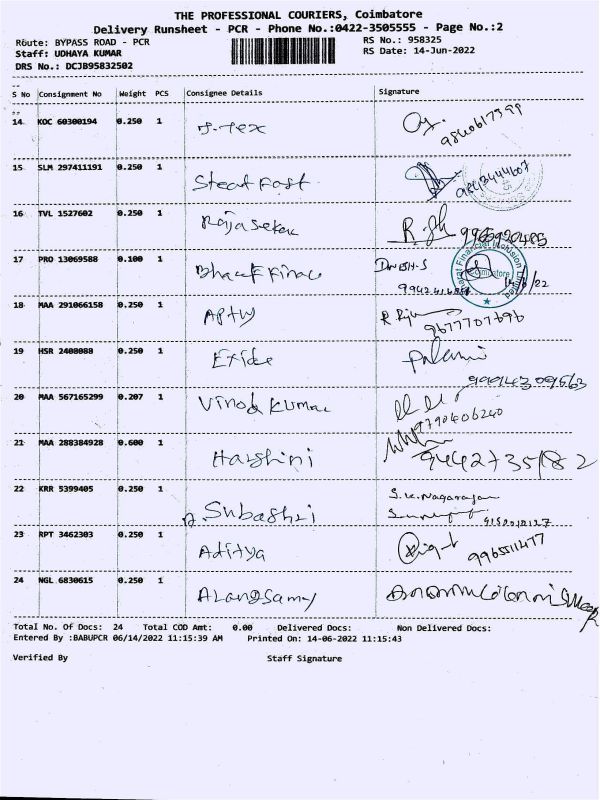 THE PROFESSIONAL COURIERS, Coimbatore
Delivery Runsheet - PCR - Phone No.:0422-3505555 - Page No.:2
Route: BYPASS ROAD - PCR RS No.: 958325
Staff: UDHAYA KUMAR RS Date: 14-Jun-2022
DRS No.: DCJB95832502
S No Consignment No Weight PCS Consignee Details Signature
14 KOC 60300194 0.250 1 J-Tex
15 SLM 297411191 0.250 1 Steat Fast 9843444607
16 TVL 1527602 0.250 1 Rajasekar
17 PRO 13069588 0.100 1 Bharat Finance
Bharat Financial Inclusion Limited Coimbatore
18 MAA 291066158 0.250 1 Aptly 9677707696
19 HSR 2408088 0.250 1 Exide Palani
20 MAA 567165299 0.207 1 Vinod Kumar 9790406240
21 MAA 288384928 0.600 1 Harshini 9442735182
22 KRR 5399405 0.250 1 Subashri S.K. Nagarajan
23 RPT 3462303 0.250 1 Aditya 9965511477
24 NGL 6830615 0.250 1 Alangsamy
Total No. Of Docs: 24 Total COD Amt: 0.00 Delivered Docs: Non Delivered Docs:
Entered By :BABUPCR 06/14/2022 11:15:39 AM Printed On: 14-06-2022 11:15:43
Verified By Staff Signature